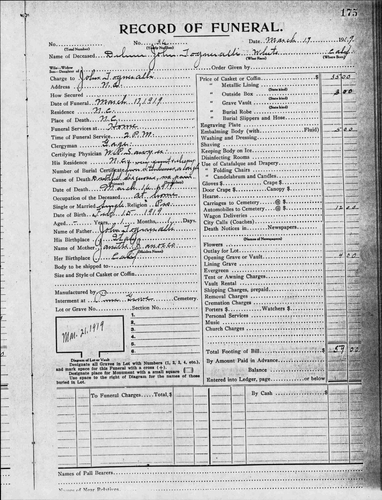 175
RECORD OF FUNERAL.
No. 36 Date, March 17, 1919
(Total Number) (Yearly Number)
Name of Deceased John Tognialli White Calif
(What Race) (Where Born)
Order Given by
Charge to John Tognialli
Address N.C.
How Secured
Date of Funeral March 17, 1919
Residence N.C.
Place of Death N.C.
Funeral Services at Home
Time of Funeral Service 2 P.M.
Clergyman
Certifying Physician
His Residence N.C.
Number of Burial Certificate
Cause of Death
Date of Death March 16, 1919
Occupation of the Deceased at home
Single or Married Single Religion
Date of Birth Feb 15, 1919
Aged Years 1 Months Days
Name of Father John Tognialli
His Birthplace Italy
Name of Mother
Her Birthplace Calif
Body to be shipped to
Size and Style of Casket or Coffin
Manufactured by
Interment at Pine Grove Cemetery.
Lot or Grave No. Section No.
Mar. 21, 1919
1.
2.
3.
4.
5.
6.
Diagram of Lot or Vault
Designate all Graves in Lot with Numbers (1, 2, 3, 4, etc.) and mark space for this Funeral with a cross (+).
Designate place for Monument with a small square
Use space to the right of Diagram for the names of those buried in Lot.
Price of Casket or Coffin $ 35 00
" Metallic Lining
" Outside Box 3 00
" Grave Vault
" Burial Robe
" Burial Slippers and Hose
Engraving Plate
Embalming Body (with Fluid) 5 00
Washing and Dressing
Shaving
Keeping Body on Ice
Disinfecting Rooms
Use of Catafalque and Drapery
" Folding Chairs
" Candelabrum and Candles
Gloves $ Crepe $
Door Crape $ Canopy $
Hearse
Carriages to Cemetery @ $
Automobiles to Cemetery @ $ 12 00
Wagon Deliveries
City Calls (Coaches)
Death Notices in Newspapers
(Names of Newspapers)
Flowers
Outlay for Lot
Opening Grave or Vault 4 00
Lining Grave
Evergreen
Tent or Awning Charges
Vault Rental
Shipping Charges, prepaid
Removal Charges
Cremation Charges
Porters $ Watchers $
Personal Services
Music
Church Charges
Total Footing of Bill $ 59 00
By Amount Paid in Advance
Balance
Entered into Ledger, page or below
To Funeral Charges Total, $
By Cash $
Names of Pall Bearers
Names of Near Relatives